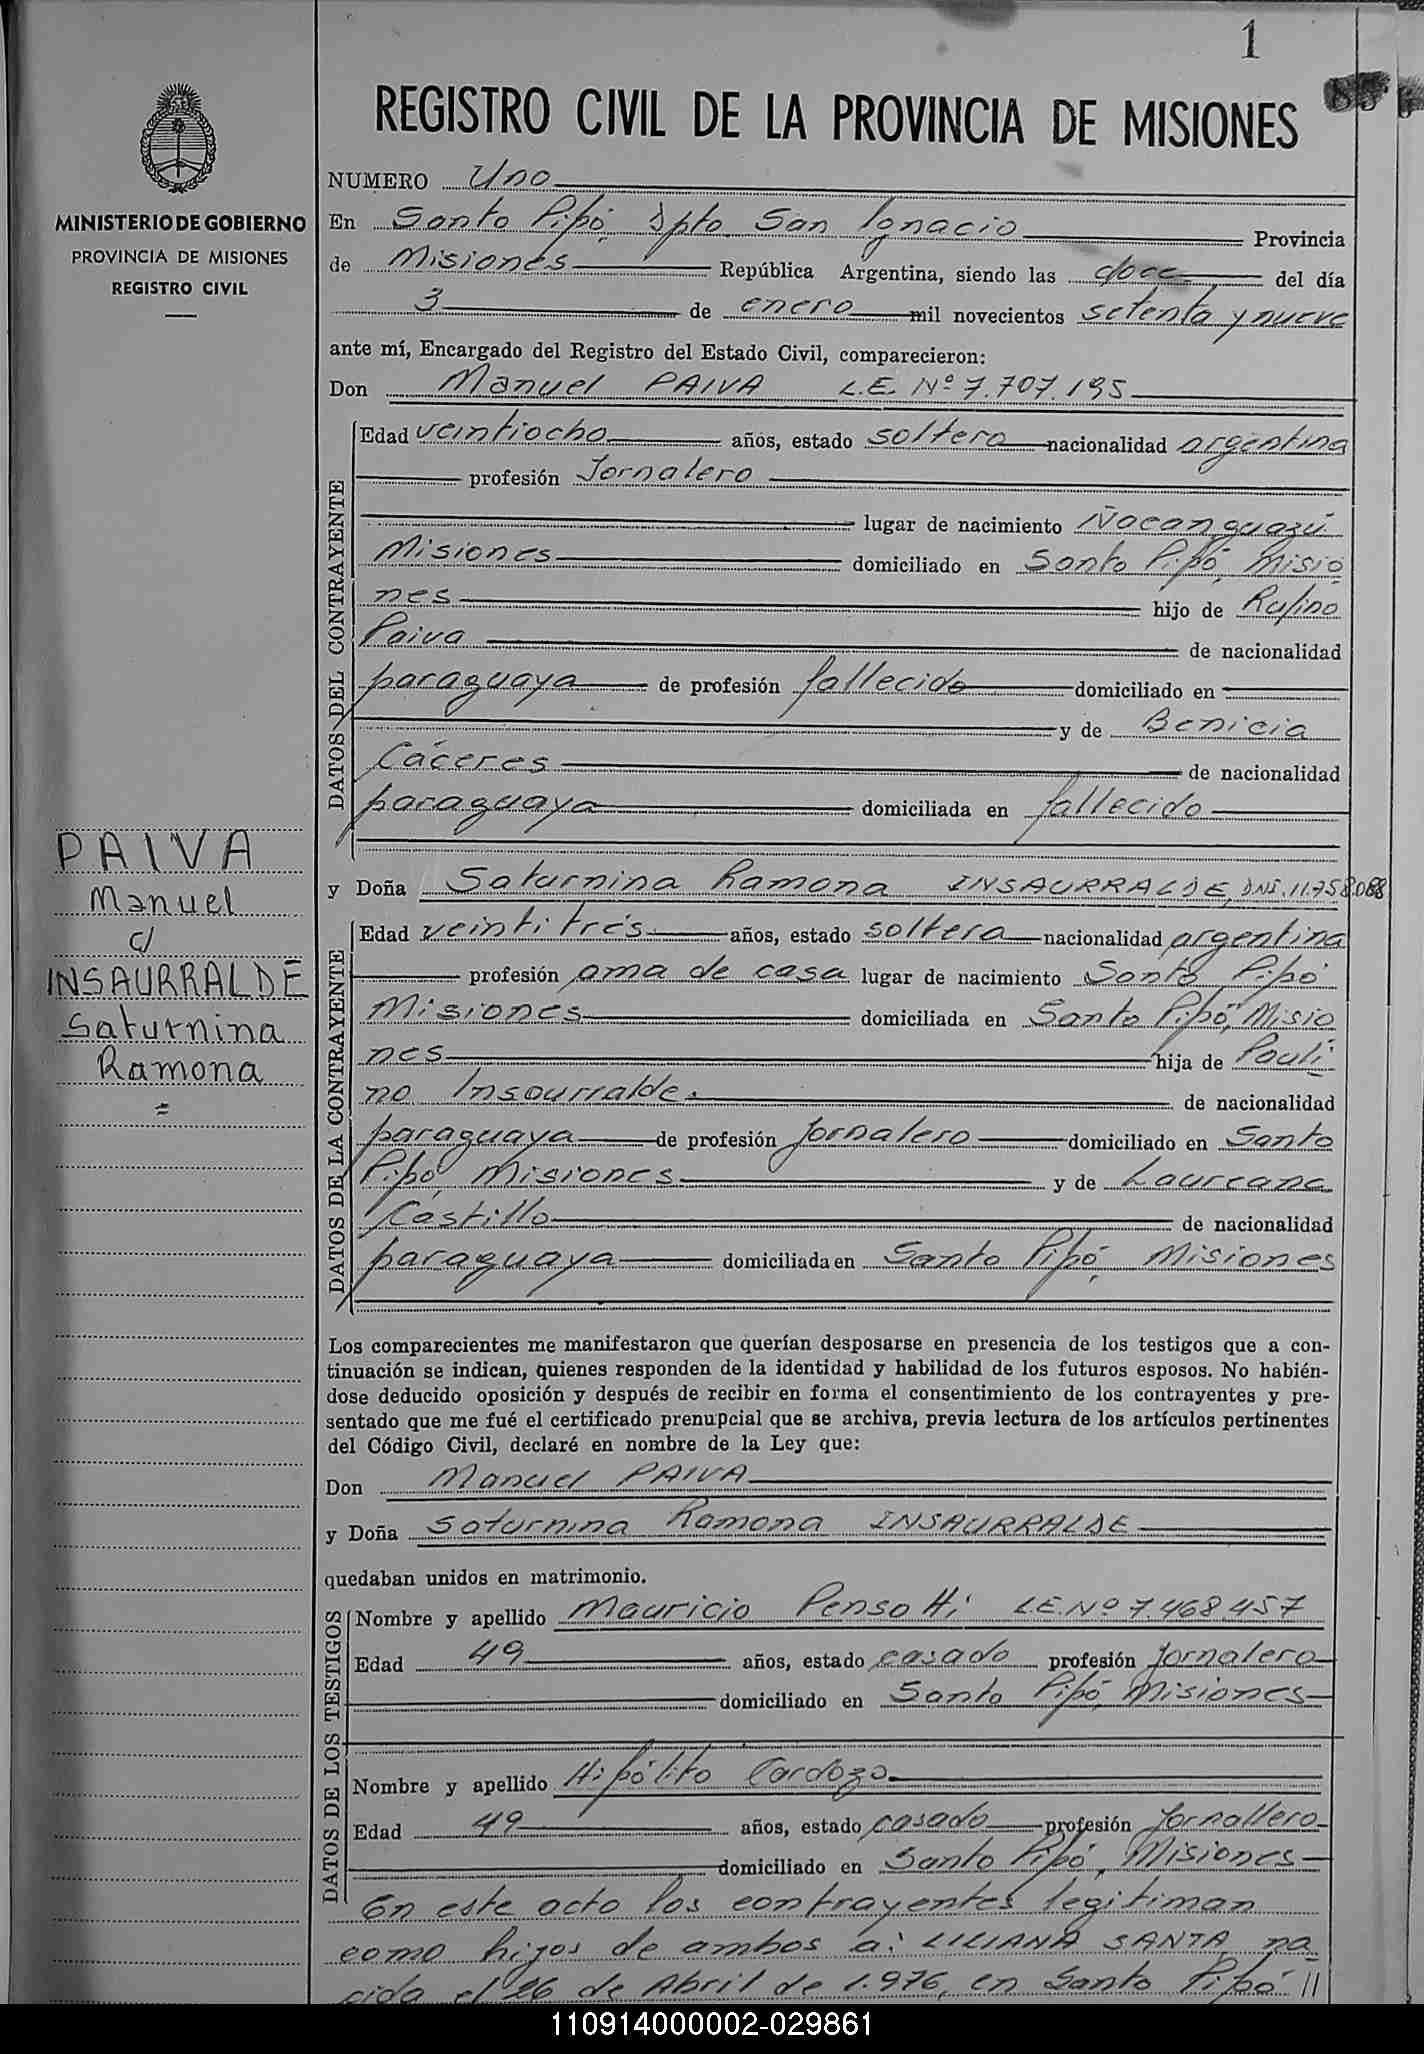 1
REGISTRO CIVIL DE LA PROVINCIA DE MISIONES
MINISTERIO DE GOBIERNO
PROVINCIA DE MISIONES
REGISTRO CIVIL
NUMERO Uno
En Santo Pipó, Dpto. San Ignacio Provincia
de Misiones República Argentina, siendo las doce del día
3 de enero mil novecientos setenta y nueve
ante mí, Encargado del Registro del Estado Civil, comparecieron:
Don Manuel PAIVA L.E. Nº 7.707.195
DATOS DEL CONTRAYENTE
Edad veintiocho años, estado soltero nacionalidad argentina
profesión Jornalero
lugar de nacimiento Ñacanguazú
Misiones domiciliado en Santo Pipó, Misio
nes hijo de Rufino
Paiva de nacionalidad
paraguaya de profesión fallecido domiciliado en
y de Benicia
Cáceres de nacionalidad
paraguaya domiciliada en fallecido
PAIVA
Manuel
c/
INSAURRALDE
Saturnina
Ramona
=
y Doña Saturnina Ramona INSAURRALDE, DNI. 11.758.088
DATOS DE LA CONTRAYENTE
Edad veintitrés años, estado soltera nacionalidad argentina
profesión ama de casa lugar de nacimiento Santo Pipó
Misiones domiciliada en Santo Pipó, Misio
nes hija de Pauli
no Insaurralde. de nacionalidad
paraguaya de profesión Jornalero domiciliado en Santo
Pipó, Misiones y de Laureana
Castillo de nacionalidad
paraguaya domiciliada en Santo Pipó, Misiones
Los comparecientes me manifestaron que querían desposarse en presencia de los testigos que a con-
tinuación se indican, quienes responden de la identidad y habilidad de los futuros esposos. No habién-
dose deducido oposición y después de recibir en forma el consentimiento de los contrayentes y pre-
sentado que me fué el certificado prenupcial que se archiva, previa lectura de los artículos pertinentes
del Código Civil, declaré en nombre de la Ley que:
Don Manuel PAIVA
y Doña Saturnina Ramona INSAURRALDE
quedaban unidos en matrimonio.
DATOS DE LOS TESTIGOS
Nombre y apellido Mauricio Pensotti L.E. Nº 7.468.457
Edad 49 años, estado casado profesión Jornalero
domiciliado en Santo Pipó, Misiones
Nombre y apellido Hipólito Cardozo
Edad 49 años, estado casado profesión Jornallero
domiciliado en Santo Pipó, Misiones
En este acto los contrayentes legitiman
como hijos de ambos a: LILIANA SANTA, na-
cida el 26 de Abril de 1.976, en Santo Pipó //
110914000002-029861